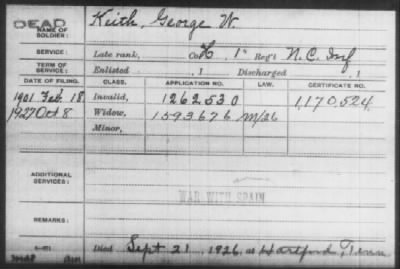 DEAD
NAME OF SOLDIER: Keith, George W.
SERVICE: Late rank, Co. H, 1st Reg't N.C. Inf
TERM OF SERVICE: Enlisted , 1 Discharged , 1
DATE OF FILING. CLASS. APPLICATION NO. LAW. CERTIFICATE NO.
1901 Feb. 18. Invalid, 1262530 1,170,524
1927 Oct 8 Widow, 1593676 M/26
Minor,
ADDITIONAL SERVICES:
WAR WITH SPAIN
REMARKS:
Died Sept 21 1926, at Hartford, Tenn